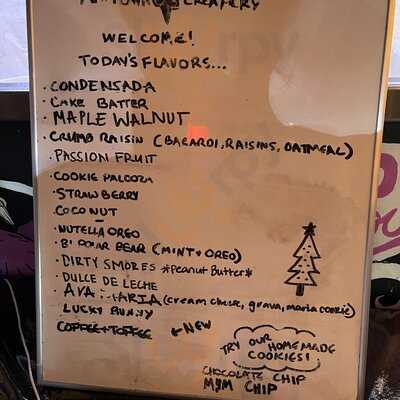 CREAMERY
WELCOME!
TODAY'S FLAVORS...
· CONDENSADA
· CAKE BATTER
· MAPLE WALNUT
· CRUMB RAISIN (BACARDI, RAISINS, OATMEAL)
· PASSION FRUIT
· COOKIE PALOOZA
· STRAWBERRY
· COCONUT
· NUTELLA OREO
· BI POLAR BEAR (MINT + OREO)
· DIRTY SMORES *Peanut Butter*
· DULCE DE LECHE
· AVA MARIA (cream cheese, guava, maria cookie)
LUCKY BUNNY
COFFEE + TOFFEE ← NEW
TRY OUR HOMEMADE COOKIES!
CHOCOLATE CHIP
M&M CHIP